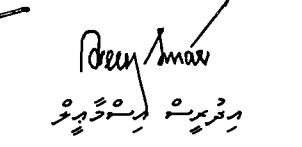 އިދުރީސް އިސްމާޢީލް